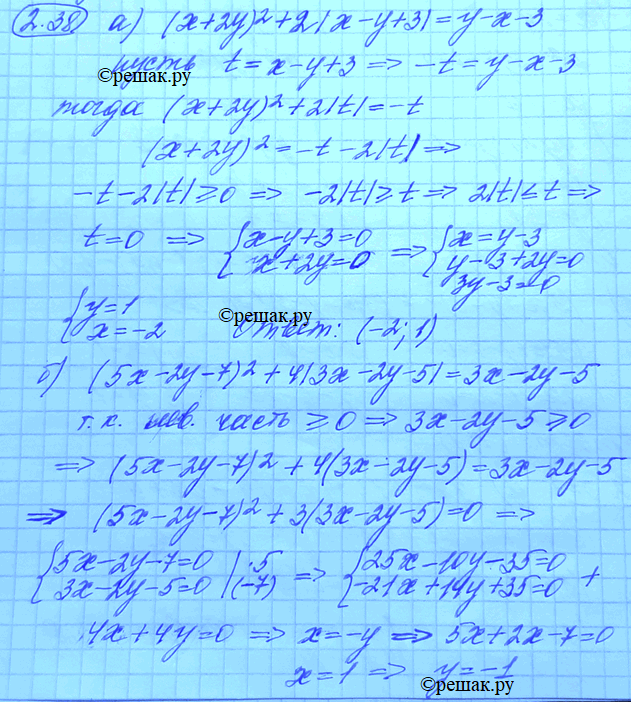 2.38 а) (x+2y)²+2|x-y+3|=y-x-3
пусть t=x-y+3 => -t=y-x-3
©решак.ру
тогда (x+2y)²+2|t|=-t
(x+2y)²=-t-2|t| =>
-t-2|t|≥0 => -2|t|≥t => 2|t|≤t =>
t=0 => {x-y+3=0 => {x=y-3
x+2y=0 y-3+2y=0
3y-3=0
{y=1
x=-2 Ответ: (-2; 1)
©решак.ру
б) (5x-2y-7)²+4|3x-2y-5|=3x-2y-5
т.к. лев. часть ≥0 => 3x-2y-5≥0
=> (5x-2y-7)²+4(3x-2y-5)=3x-2y-5
=> (5x-2y-7)²+3(3x-2y-5)=0 =>
{5x-2y-7=0 |·5 => {25x-10y-35=0 +
3x-2y-5=0 |(-7) -21x+14y+35=0
4x+4y=0 => x=-y => 5x+2x-7=0
x=1 => y=-1
©решак.ру